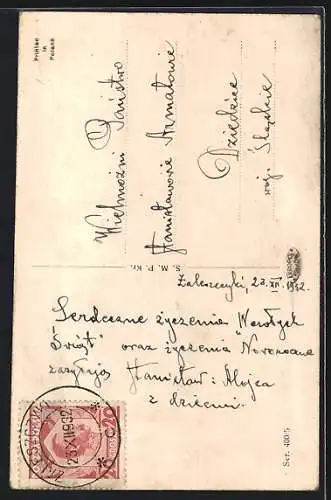 Printed
in
Poland
Wielmożni Państwo
Stanisławowie Armatowie
Dziedzice
woj. Śląskie
S. M. P. Kr.
Zaleszczyki, 23.XII 1932.
Serdeczne życzenia "Wesołych
Świąt" oraz życzenia Noworoczne
zasyłają Stanisław i Alojza
z dziećmi.
23 XII 932
20
Ser. 400/5